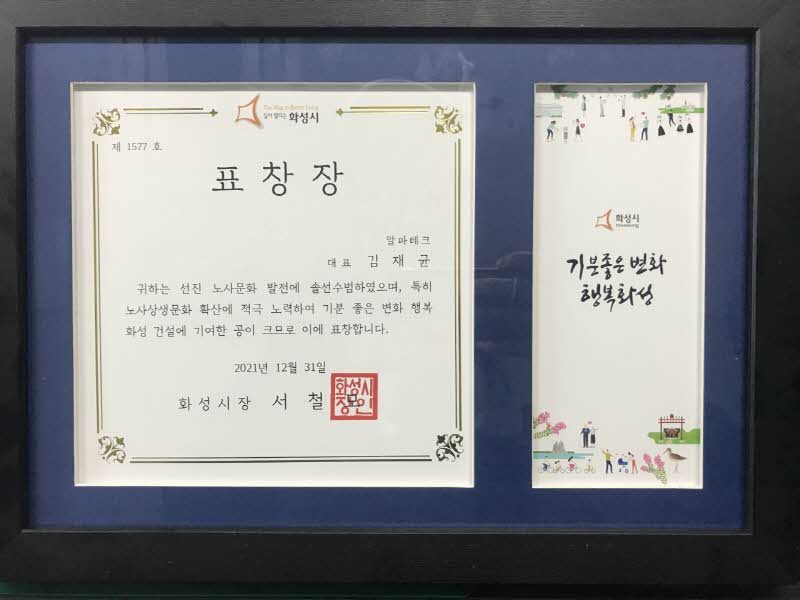 The Way to Better Living
길이 열리는 화성시
제 1577 호
표창장
알파테크
대표 김재균
귀하는 선진 노사문화 발전에 솔선수범하였으며, 특히
노사상생문화 확산에 적극 노력하여 기분 좋은 변화 행복
화성 건설에 기여한 공이 크므로 이에 표창합니다.
2021년 12월 31일
화성시장 서철모
화성시
장인
화성시
Hwaseong
기분좋은 변화
행복화성